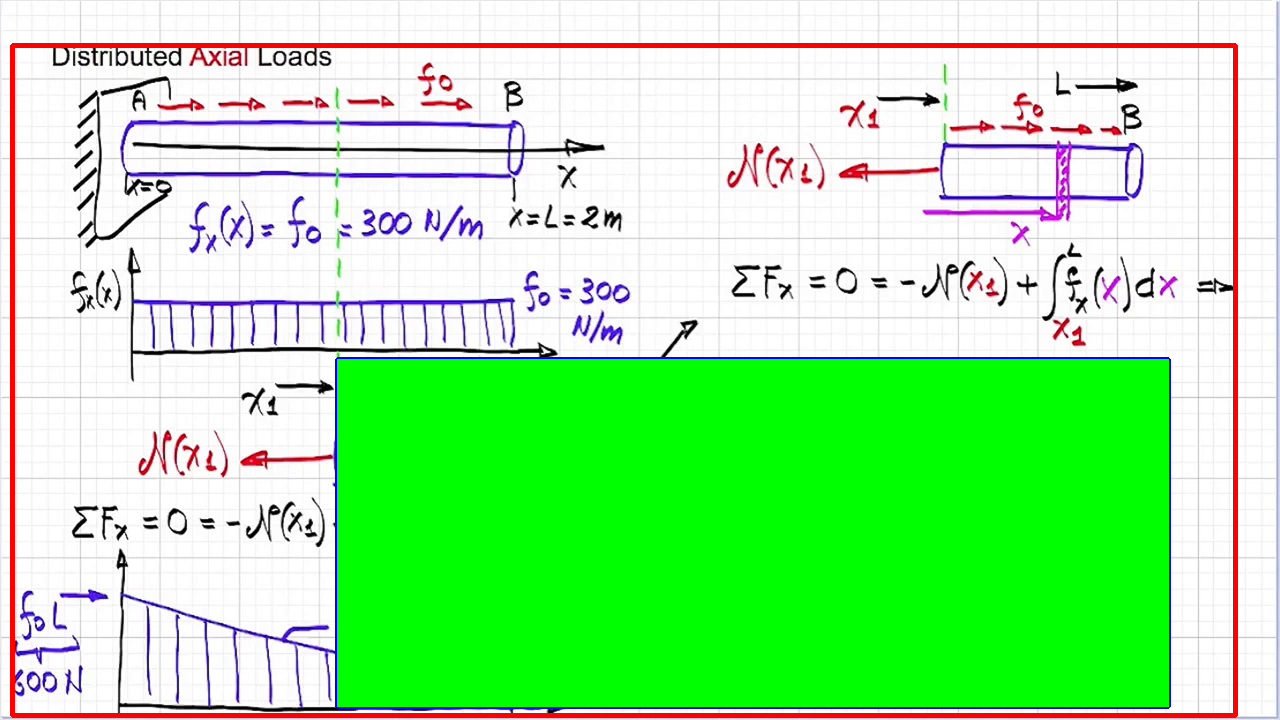 Distributed Axial Loads
A f0 B
x=0 x
fx(x) = f0 = 300 N/m x = L = 2m
fx(x) f0 = 300
N/m
x1
N(x1)
ΣFx = 0 = -N(x1)
f0L
600N
x1 f0 L
B
N(x1)
x
ΣFx = 0 = -N(x1) + ∫x1^L fx(x)dx ⇒